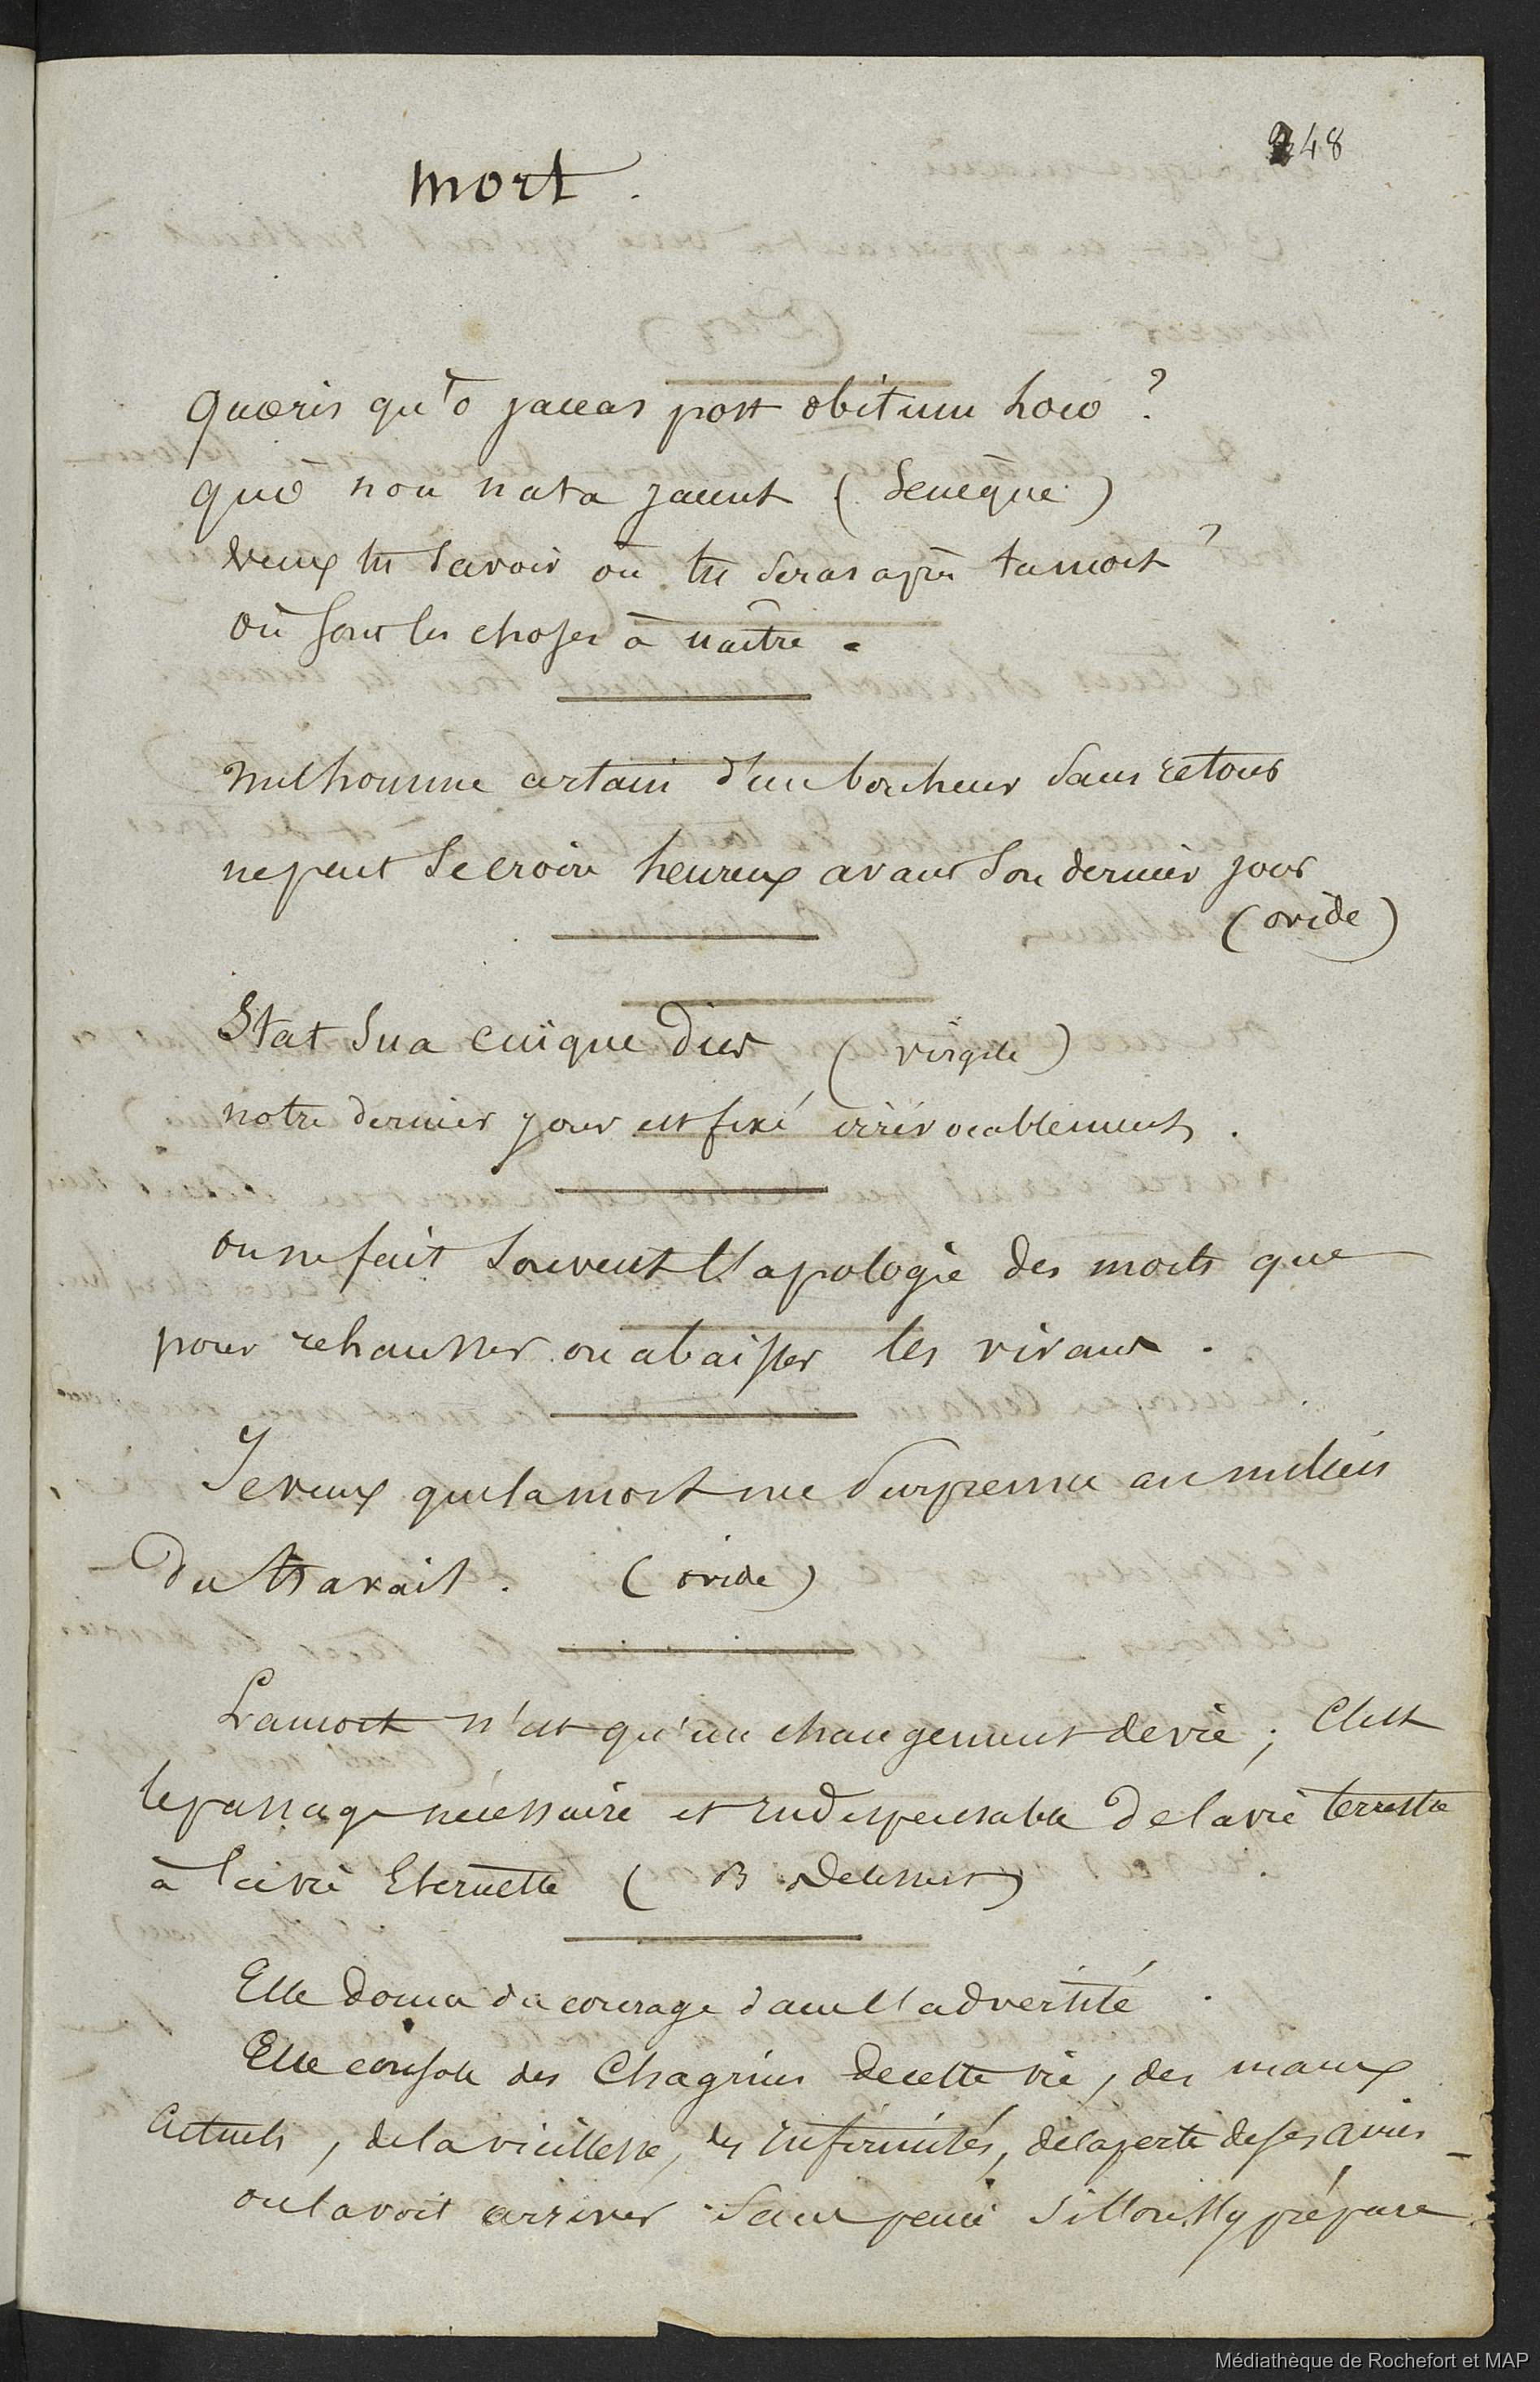 248
mort.
quoeris quo jaceas post obitum loco ?
quo non nata jacent ( Seneque )
veux tu Savoir où tu Seras après ta mort ?
où Sont les choses à naître.
nul homme certain d'un bonheur Sans retour
ne peut Se croire heureux avant Son dernier jour
( ovide )
Stat Sua cuïque dies ( virgile )
notre dernier jour est fixé irrévocablement.
on ne fait Souvent l'apologie des morts que
pour rehausser ou abaisser les vivans.
Je veux que la mort me Surprenne au milieu
du travail. ( ovide )
La mort n'est qu'un changement de vie ; C'est
le passage nécessaire et indispensable de la vie terrestre
à la vie Eternelle ( B Delessert )
Elle donne du courage dans l'adversité.
Elle console des Chagrins de cette vie, des maux
actuels, de la vieillesse, des infirmités, de la perte de ses amis -
on la voit arriver Sans peine Si l'on S'y prépare.
Médiathèque de Rochefort et MAP